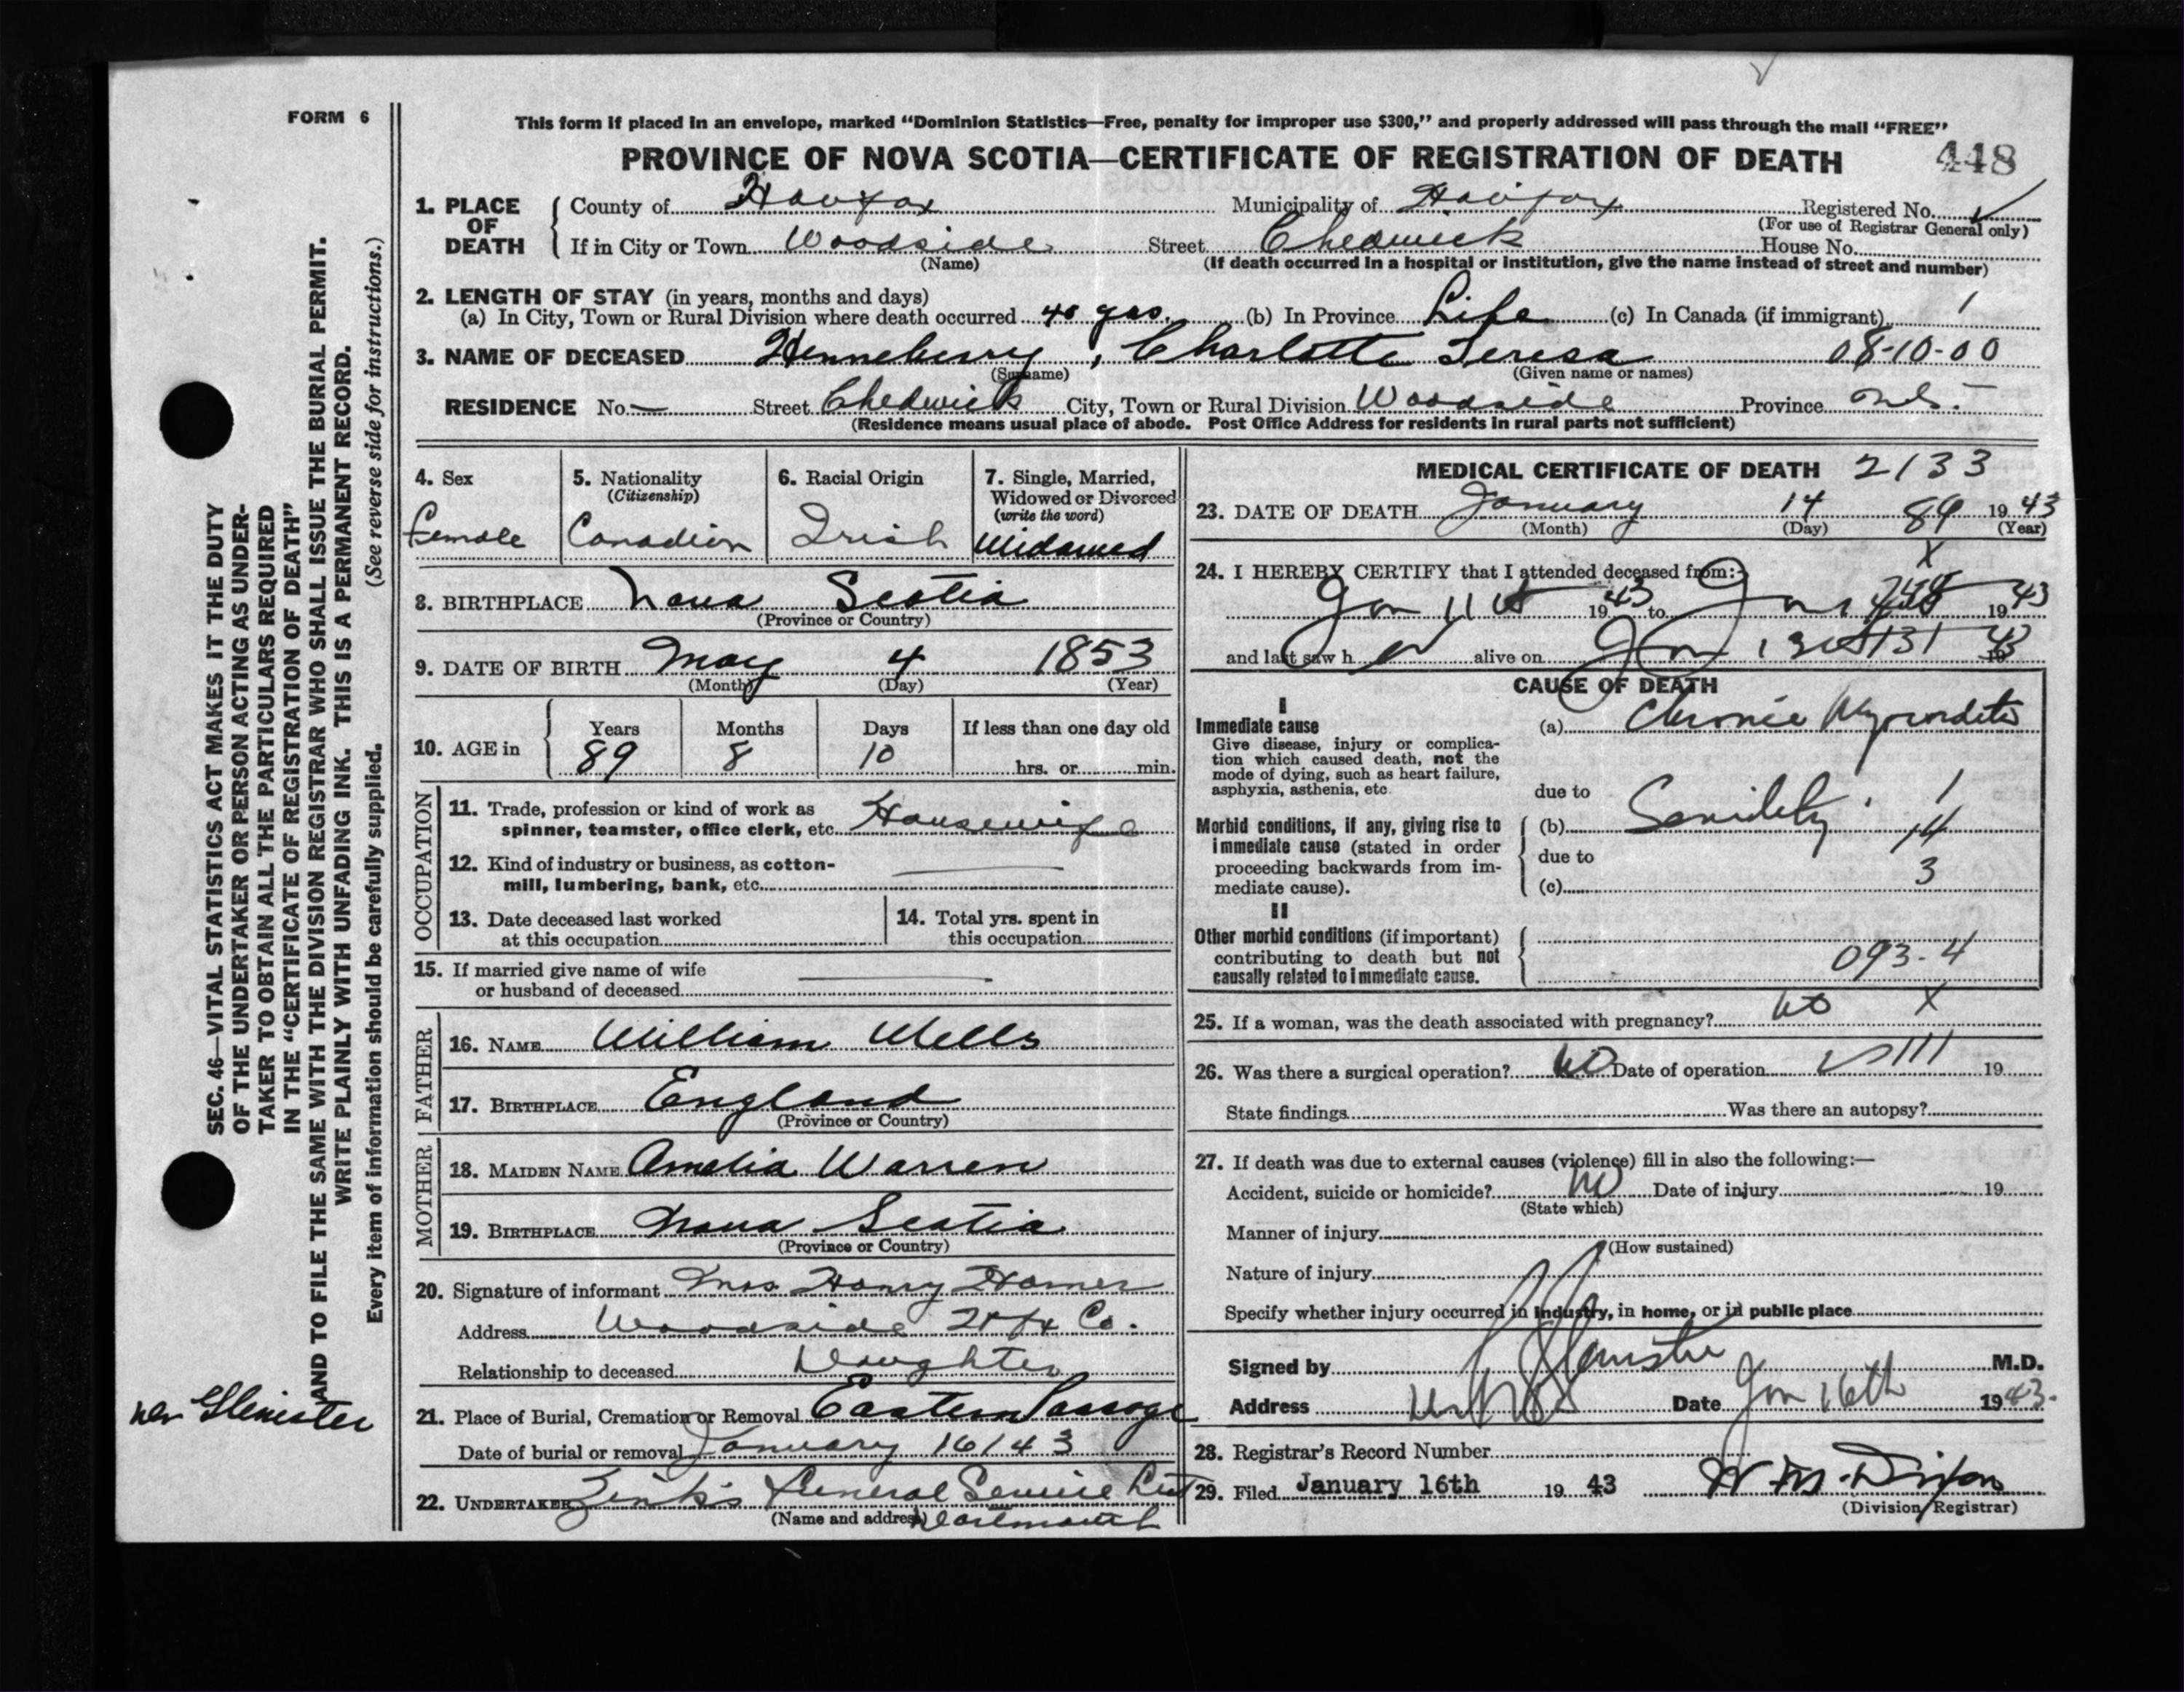 FORM 6
This form if placed in an envelope, marked "Dominion Statistics—Free, penalty for improper use $300," and properly addressed will pass through the mail "FREE"
PROVINCE OF NOVA SCOTIA—CERTIFICATE OF REGISTRATION OF DEATH 448
1. PLACE OF DEATH
County of Halifax Municipality of Halifax Registered No.
(For use of Registrar General only)
If in City or Town Woodside Street Chedwick House No.
(Name) (If death occurred in a hospital or institution, give the name instead of street and number)
2. LENGTH OF STAY (in years, months and days)
(a) In City, Town or Rural Division where death occurred 40 yrs. (b) In Province Life (c) In Canada (if immigrant)
3. NAME OF DECEASED Henneberry, Charlotte Teresa 08-10-00
(Surname) (Given name or names)
RESIDENCE No. — Street Chedwick City, Town or Rural Division Woodside Province N.S.
(Residence means usual place of abode. Post Office Address for residents in rural parts not sufficient)
4. Sex
Female
5. Nationality
(Citizenship)
Canadian
6. Racial Origin
Irish
7. Single, Married,
Widowed or Divorced
(write the word)
Widowed
8. BIRTHPLACE Nova Scotia
(Province or Country)
9. DATE OF BIRTH May 4 1853
(Month) (Day) (Year)
10. AGE in
Years Months Days If less than one day old
89 8 10 hrs. or min.
OCCUPATION
11. Trade, profession or kind of work as
spinner, teamster, office clerk, etc. Housewife
12. Kind of industry or business, as cotton-
mill, lumbering, bank, etc.
13. Date deceased last worked
at this occupation
14. Total yrs. spent in
this occupation
15. If married give name of wife
or husband of deceased
FATHER
16. NAME William Wells
17. BIRTHPLACE England
(Province or Country)
MOTHER
18. MAIDEN NAME Amelia Warren
19. BIRTHPLACE Nova Scotia
(Province or Country)
20. Signature of informant Mrs Henry Horner
Address Woodside Hfx Co.
Relationship to deceased Daughter
21. Place of Burial, Cremation or Removal Eastern Passage
Date of burial or removal January 16/43
22. UNDERTAKER Zink's Funeral Service Ltd
(Name and address) Dartmouth
MEDICAL CERTIFICATE OF DEATH 2133
23. DATE OF DEATH January 14 89 1943
(Month) (Day) (Year)
X
24. I HEREBY CERTIFY that I attended deceased from:—
Jan 11th 1943 to Jan 1943
and last saw her alive on Jan 13th 1943
CAUSE OF DEATH
I
Immediate cause
Give disease, injury or complica-
tion which caused death, not the
mode of dying, such as heart failure,
asphyxia, asthenia, etc.
(a) Chronic Myocarditis
due to
Morbid conditions, if any, giving rise to
immediate cause (stated in order
proceeding backwards from im-
mediate cause).
(b) Senility 1
14
due to
3
(c)
II
Other morbid conditions (if important)
contributing to death but not
causally related to immediate cause.
093-4
25. If a woman, was the death associated with pregnancy? no X
26. Was there a surgical operation? no Date of operation 19
State findings Was there an autopsy?
27. If death was due to external causes (violence) fill in also the following:—
Accident, suicide or homicide? no Date of injury 19
(State which)
Manner of injury
(How sustained)
Nature of injury
Specify whether injury occurred in industry, in home, or in public place
Signed by M.D.
Address Date Jan 16th 1943.
28. Registrar's Record Number
29. Filed January 16th 1943
(Division Registrar)
SEC. 46—VITAL STATISTICS ACT MAKES IT THE DUTY
OF THE UNDERTAKER OR PERSON ACTING AS UNDER-
TAKER TO OBTAIN ALL THE PARTICULARS REQUIRED
IN THE "CERTIFICATE OF REGISTRATION OF DEATH"
AND TO FILE THE SAME WITH THE DIVISION REGISTRAR WHO SHALL ISSUE THE BURIAL PERMIT.
WRITE PLAINLY WITH UNFADING INK. THIS IS A PERMANENT RECORD.
Every item of information should be carefully supplied. (See reverse side for instructions.)
Glenister